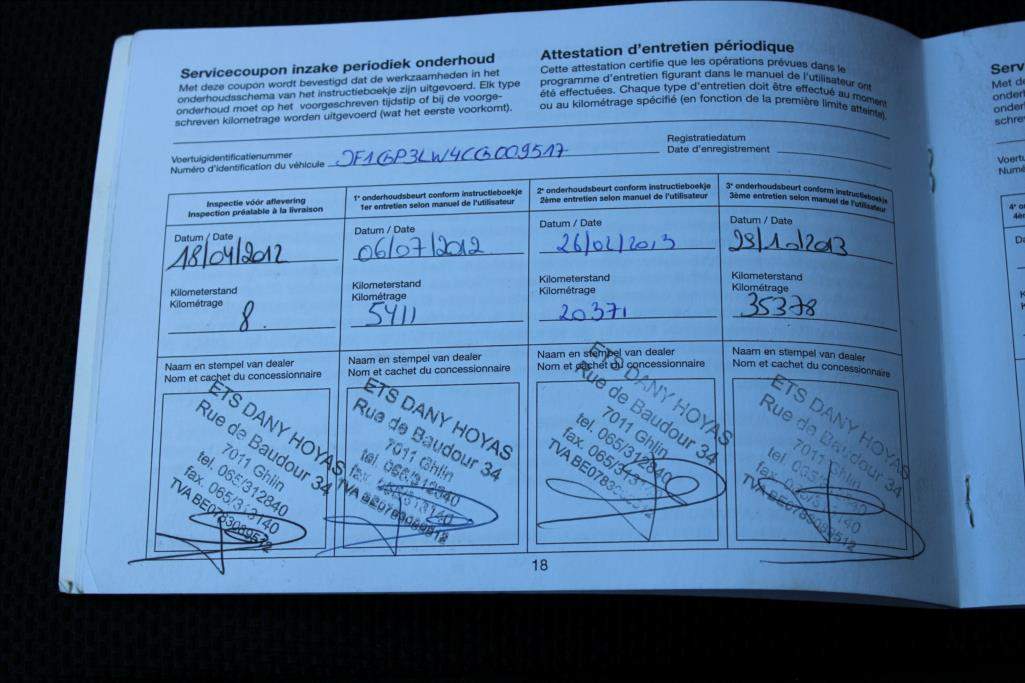 Servicecoupon inzake periodiek onderhoud
Met deze coupon wordt bevestigd dat de werkzaamheden in het
onderhoudsschema van het instructieboekje zijn uitgevoerd. Elk type
onderhoud moet op het voorgeschreven tijdstip of bij de voorge-
schreven kilometrage worden uitgevoerd (wat het eerste voorkomt).
Attestation d'entretien périodique
Cette attestation certifie que les opérations prévues dans le
programme d'entretien figurant dans le manuel de l'utilisateur ont
été effectuées. Chaque type d'entretien doit être effectué au moment
ou au kilométrage spécifié (en fonction de la première limite atteinte).
Voertuigidentificatienummer
Numéro d'identification du véhicule JF1GP3LW4CG009517
Registratiedatum
Date d'enregistrement
Inspectie vóór aflevering
Inspection préalable à la livraison
Datum / Date
18/04/2012
Kilometerstand
Kilométrage
8.
Naam en stempel van dealer
Nom et cachet du concessionnaire
ETS DANY HOYAS
Rue de Baudour 34
7011 Ghlin
tel. 065/312840
fax. 065/313140
TVA BE0783089512
1e onderhoudsbeurt conform instructieboekje
1er entretien selon manuel de l'utilisateur
Datum / Date
06/07/2012
Kilometerstand
Kilométrage
5411
Naam en stempel van dealer
Nom et cachet du concessionnaire
ETS DANY HOYAS
Rue de Baudour 34
7011 Ghlin
tel. 065/312840
fax. 065/313140
TVA BE0783089512
2e onderhoudsbeurt conform instructieboekje
2ème entretien selon manuel de l'utilisateur
Datum / Date
26/02/2013
Kilometerstand
Kilométrage
20371
Naam en stempel van dealer
Nom et cachet du concessionnaire
ETS DANY HOYAS
Rue de Baudour 34
7011 Ghlin
tel. 065/312840
fax. 065/3431
TVA BE0783
3e onderhoudsbeurt conform instructieboekje
3ème entretien selon manuel de l'utilisateur
Datum / Date
29/10/2013
Kilometerstand
Kilométrage
35378
Naam en stempel van dealer
Nom et cachet du concessionnaire
ETS DANY HOYAS
Rue de Baudour 34
7011 Ghlin
tel. 065/312840
TVA BE0783089512
18